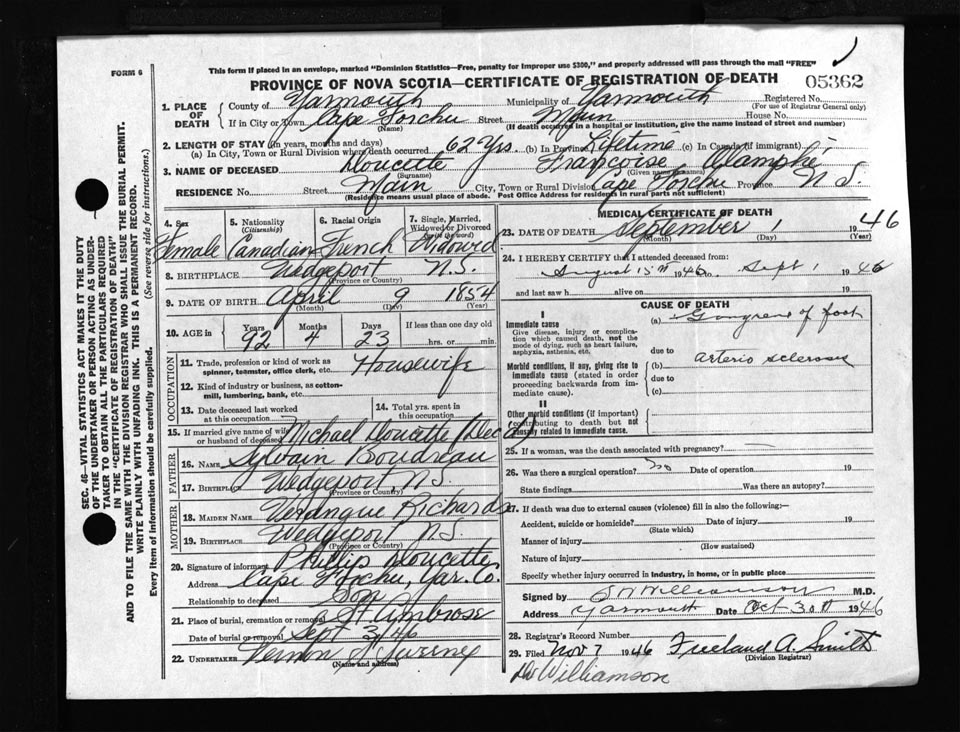 This form if placed in an envelope, marked "Dominion Statistics—Free, penalty for improper use $300," and properly addressed will pass through the mail "FREE"
FORM 6
PROVINCE OF NOVA SCOTIA—CERTIFICATE OF REGISTRATION OF DEATH
05362
1. PLACE OF DEATH
County of Yarmouth Municipality of Yarmouth Registered No.
(For use of Registrar General only)
If in City or Town Cape Forchu Street Main House No.
(Name) (If death occurred in a hospital or institution, give the name instead of street and number)
2. LENGTH OF STAY (in years, months and days)
(a) In City, Town or Rural Division where death occurred 62 Yrs. (b) In Province Lifetime (c) In Canada (if immigrant)
3. NAME OF DECEASED Doucette Françoise
(Surname) (Given name or names)
RESIDENCE No. Street Main City, Town or Rural Division Cape Forchu Province N.S.
(Residence means usual place of abode. Post Office Address for residents in rural parts not sufficient)
4. Sex Female
5. Nationality (Citizenship) Canadian
6. Racial Origin French
7. Single, Married, Widowed or Divorced (write the word) Widowed
8. BIRTHPLACE Wedgeport N.S.
(Province or Country)
9. DATE OF BIRTH April 9 1854
(Month) (Day) (Year)
10. AGE in Years Months Days If less than one day old
92 4 23 hrs. or min.
OCCUPATION
11. Trade, profession or kind of work as spinner, teamster, office clerk, etc. Housewife
12. Kind of industry or business, as cotton-mill, lumbering, bank, etc.
13. Date deceased last worked at this occupation
14. Total yrs. spent in this occupation
15. If married give name of wife or husband of deceased Michael Doucette (Dec'd)
FATHER
16. NAME Sylvain Boudreau
17. BIRTHPLACE Wedgeport, N.S.
(Province or Country)
MOTHER
18. MAIDEN NAME Richards
19. BIRTHPLACE Wedgeport N.S.
(Province or Country)
20. Signature of informant Phillip Doucette
Address Cape Forchu, Yar. Co.
Relationship to deceased Son
21. Place of burial, cremation or removal St Ambrose
Date of burial or removal Sept 3/46
22. UNDERTAKER Vernon Sweeny
(Name and address)
MEDICAL CERTIFICATE OF DEATH
23. DATE OF DEATH September 1 1946
(Month) (Day) (Year)
24. I HEREBY CERTIFY that I attended deceased from:
August 15th 1946 to Sept 1 1946
and last saw h alive on 19
CAUSE OF DEATH
I
Immediate cause
Give disease, injury or complication which caused death, not the mode of dying, such as heart failure, asphyxia, asthenia, etc.
(a) Gangrene of foot
due to
Morbid conditions, if any, giving rise to immediate cause (stated in order proceeding backwards from immediate cause).
(b) arterio sclerosis
due to
(c)
II
Other morbid conditions (if important) contributing to death but not causally related to immediate cause.
25. If a woman, was the death associated with pregnancy?
26. Was there a surgical operation? no Date of operation 19
State findings Was there an autopsy?
27. If death was due to external causes (violence) fill in also the following:—
Accident, suicide or homicide? Date of injury 19
(State which)
Manner of injury
(How sustained)
Nature of injury
Specify whether injury occurred in industry, in home, or in public place
Signed by Williamson M.D.
Address Yarmouth Date Oct 30th 1946
28. Registrar's Record Number
29. Filed Nov 7 1946 Freeland A. Smith
(Division Registrar)
Dr Williamson
SEC. 46—VITAL STATISTICS ACT MAKES IT THE DUTY
OF THE UNDERTAKER OR PERSON ACTING AS UNDER-
TAKER TO OBTAIN ALL THE PARTICULARS REQUIRED
IN THE "CERTIFICATE OF REGISTRATION OF DEATH"
AND TO FILE THE SAME WITH THE DIVISION REGISTRAR WHO SHALL ISSUE THE BURIAL PERMIT.
WRITE PLAINLY WITH UNFADING INK. THIS IS A PERMANENT RECORD.
Every item of information should be carefully supplied. (See reverse side for instructions.)